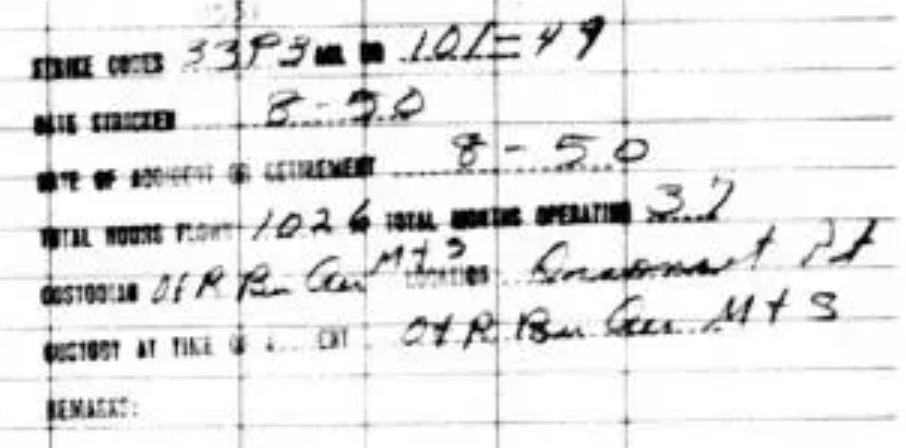 STRIKE CODES 33P3 MR. OR 101-49
DATE STRICKEN 8-50
DATE OF ACCIDENT OR RETIREMENT 8-50
TOTAL HOURS FLOWN 1026 TOTAL MONTHS OPERATING 37
CUSTODIAN O&R Bu Aer M&S LOCATION Quonset Pt
CUSTODY AT TIME OF O&R Bu Aer M&S
REMARKS: